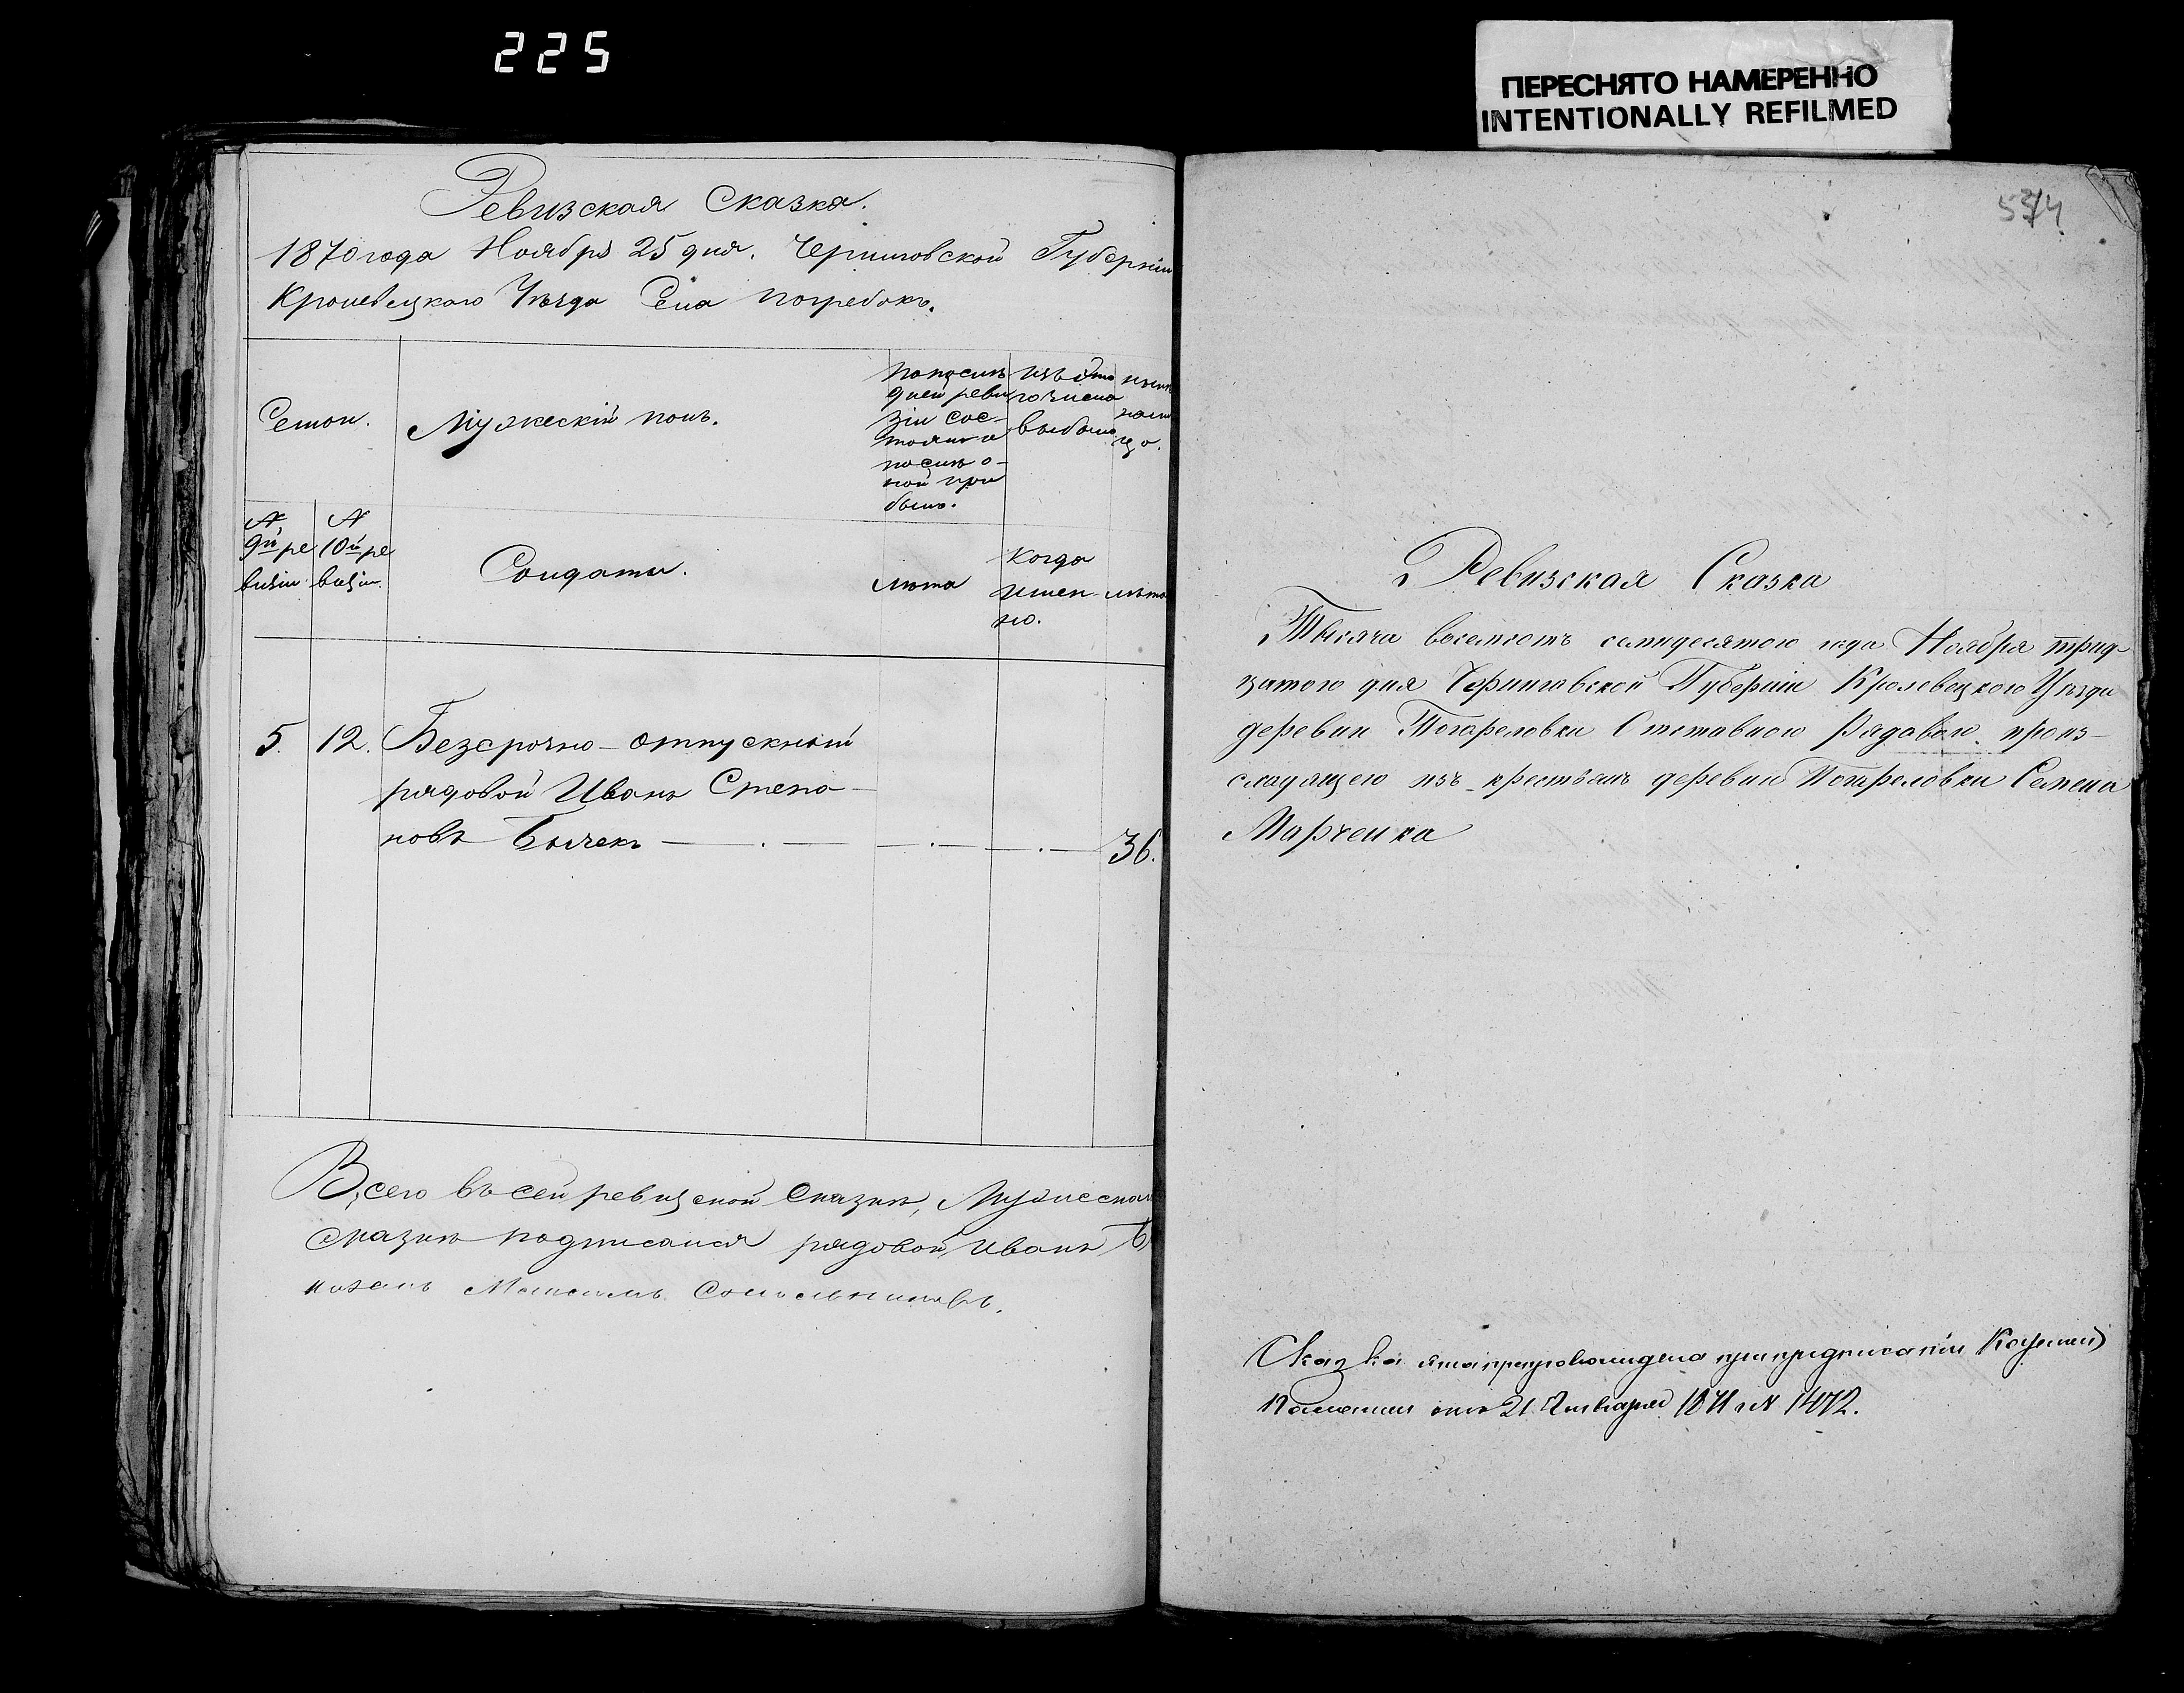 225
ПЕРЕСНЯТО НАМЕРЕННО
INTENTIONALLY REFILMED
Ревизская Сказка.
1870 года Ноября 25 дня. Черниговской Губерніи
Кролевецкаго Уѣзда Села Погребокъ.
Семьи.
Мужескій полъ.
По послѣ
дней реви
зіи сос-
тояло и
послѣ о-
ной при
было.
Изъ это
го числа
выбыло
нынѣ
налы
цо.
№
9й ре
визіи
№
10й ре
визіи.
Солдаты.
лѣта
когда
имен-
но.
лѣта
5.
12.
Безсрочно-отпускный
рядовой Иванъ Степа-
новъ Бычекъ
36.
Всего въ сей ревизской сказкѣ, Мужеска
сказкѣ подписался рядовой Иванъ Б
Максимъ
534
Ревизская Сказка
Тысяча восемьсотъ семидесятого года Ноября трид-
цатого дня Черниговской Губерніи Кролевецкого Уѣзда
деревни Погореловки Отставного Рядового проис-
ходящего изъ крестьянъ деревни Погореловки Семена
Марченка
Сказка эта препровождена при предписаніи Казенной
Палаты отъ 21 Января 1871 г № 1472.